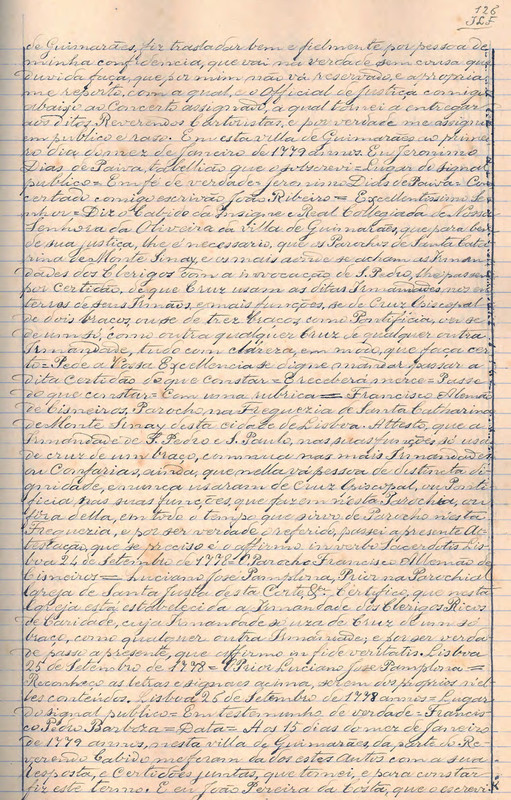 126
de Guimarães, fiz trasladar bem e fielmente por pessoa de
minha confidencia, que vai na verdade sem cousa que
duvida faça, que por mim não vá reservado, e a propria
me reporto, com a qual, e o Official de justiça comigo
abaixo ao Concerto assignado, a qual tornei a entregar
aos ditos Reverendos Cartoristas, e por verdade me assignei
em publico e raso. Em esta villa de Guimarães aos primei
ro dia do mez de Janeiro de 1779 annos. Eu Jeronimo
Dias de Paiva tabellião que o subscrevi = Lugar do signal
publico = Em fé de verdade Jeronimo Dias de Paiva = Con
certado comigo escrivão João Ribeiro = Excellentissimo Se
nhor = Diz o Cabido da Insigne e Real Collegiada de Nossa
Senhora da Oliveira da Villa de Guimarães, que para bem
de sua justiça, lhe é necessario, que os Parochos de Santa Catha
rina de Monte Sinay, e os mais aonde se acham as Irman
dades dos Clerigos com a invocação de S. Pedro, lhe passem
por Certidão, de que Cruz usam as ditas Irmandades nos en
terros de seus Irmãos, e mais funções, se de Cruz Episcopal
de dois braços, ou se de tres braços como Pontificia, ou se
de um só, como outra qualquer Cruz de qualquer outra
Irmandade, tudo com clareza, em modo, que faça cer
to = Pede a Vossa Excellencia se digne mandar passar a
dita certidão do que constar = E receberá mercê = Passe
do que constar = Com uma rubrica = Francisco Alemão
de Cisneiros, Parocho na Freguezia de Santa Catharina
de Monte Sinay desta cidade de Lisboa. Attesto, que a
Irmandade de S. Pedro e S. Paulo, nas suas funções só usa
de cruz de um braço, commua nas mais Irmandades
ou Confrarias, ainda, que nella vá pessoa de distincta di
gnidade, e nunca usaram de Cruz Episcopal, ou Ponti
ficia nas suas funções, que fazem n'esta Parochia, ou
fóra della, em todo o tempo que sirvo de Parocho n'esta
Freguezia, e por ser verdade o referido, passei a presente At
testação, que se preciso é o affirmo in verbo Sacerdotis Lis
boa 24 de Setembro de 1778 = O Parocho Francisco Allemão de
Cisneiros = Luciano José Pamplona, Prior na Parochial
Igreja de Santa Justa desta Corte, &. Certifico, que nesta
Igreja está estabelecida a Irmandade dos Clerigos Ricos
de Caridade, cuja Irmandade só uza de Cruz de um só
braço, como qualquer outra Irmandade; e por ser verda
de passo a presente, que affirmo in fide veritatis. Lisboa
25 de Setembro de 1778 = O Prior Luciano José Pamplona =
Reconheço as letras e signaes acima, serem dos proprios nel
les conteúdos. Lisboa 26 de Setembro de 1778 annos = Lugar
do signal publico = Em testemunho de verdade = Francis
co Pedro Barboza = Data = Aos 15 dias do mez de Janeiro
de 1779 annos, nesta villa de Guimarães, da parte do Re
verendo Cabido me foram dados estes Autos com a sua
resposta, e Certidões juntas, que tomei, e para constar
fiz este termo. E eu João Pereira da Costa, que o escrevi